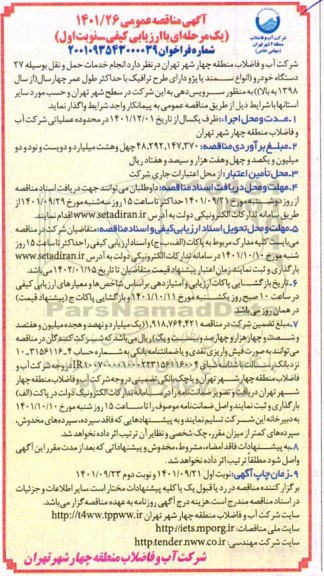 آگهی مناقصه عمومی ۱۴۰۱/۲۶
(یک مرحله‌ای با ارزیابی کیفی_نوبت اول)
شماره فراخوان ۲۰۰۱۰۹۵۴۳۰۰۰۰۳۹
شرکت آب و فاضلاب
منطقه ۴ شهر تهران
(سهامی خاص)
شرکت آب و فاضلاب منطقه چهار شهر تهران در نظر دارد انجام خدمات حمل و نقل بوسیله ۲۷
دستگاه خودرو (انواع سمند یا پژو دارای طرح ترافیک با حداکثر طول عمر چهار سال (از سال
۱۳۹۸ به بالا)) به منظور سرویس دهی به این شرکت در سطح شهر تهران و حسب مورد سایر
استانها با شرایط ذیل از طریق مناقصه عمومی به پیمانکار واجد شرایط واگذار نماید.
۱_مدت و محل اجرا: ظرف یکسال از تاریخ ۱۴۰۱/۱۲/۰۱ در محدوده عملیاتی شرکت آب
و فاضلاب منطقه چهار شهر تهران
۲_مبلغ برآوردی مناقصه: ۴۸,۲۹۲,۱۴۷,۳۷۰ چهل و هشت میلیارد و دویست و نود و دو
میلیون و یکصد و چهل و هفت هزار و سیصد و هفتاد ریال
۳_محل تامین اعتبار: از محل اعتبارات جاری شرکت
۴_مهلت و محل دریافت اسناد مناقصه: داوطلبان می توانند جهت دریافت اسناد مناقصه
از روز دوشنبه مورخ ۱۴۰۱/۰۹/۲۱ حداکثر تا ساعت ۱۵ روز سه شنبه مورخ ۱۴۰۱/۰۹/۲۹ از
طریق سامانه تدارکات الکترونیکی دولت به آدرس www.setadiran.ir اقدام نمایند.
۵_مهلت و محل تحویل اسناد ارزیابی کیفی و اسناد مناقصه: متقاضیان شرکت در مناقصه
می بایست کلیه مدارک مربوط به پاکات (الف، ب، ج) و اسناد ارزیابی کیفی را حداکثر تا ساعت ۱۵ روز
شنبه مورخ ۱۴۰۱/۱۰/۱۰ در سامانه تدارکات الکترونیکی دولت به آدرس www.setadiran.ir
بارگذاری و ثبت نمایند. زمان اعتبار پیشنهاد قیمت متقاضیان تا تاریخ ۱۴۰۲/۰۱/۱۵ می باشد.
۶_تاریخ بازگشایی پاکات ارزیابی و امتیازدهی بر اساس شاخص ها و معیارهای ارزیابی کیفی
در ساعت ۱۰ صبح روز یکشنبه مورخ ۱۴۰۱/۱۰/۱۱ و بازگشایی پاکات ج (پیشنهاد قیمت)
در همان روز می باشد.
۷_مبلغ تضمین شرکت در مناقصه ۱,۹۱۸,۷۶۴,۴۲۱ (یک میلیارد و نهصد و هجده میلیون و هفتصد
و شصت و چهار هزار و چهارصد و بیست و یک) ریال می باشد که شرکت کنندگان در مناقصه
می توانند به صورت فیش واریزی نقدی و یا ضمانتنامه بانکی به شماره حساب
فاضلاب منطقه چهار شهر تهران و یا چک بانکی تضمینی در وجه شرکت آب و فاضلاب منطقه چهار
شهر تهران دریافت و تصویر ضمانت نامه را در سامانه تدارکات الکترونیک دولت در پاکت (الف)
بارگذاری و ثبت نمایند و اصل ضمانت نامه موصوف را تا ساعت ۱۵ روز شنبه مورخ ۱۴۰۱/۱۰/۱۰
به دبیرخانه این شرکت تسلیم نمایند و به پیشنهادهایی که فاقد سپرده، سپرده های مخدوش،
سپرده های کمتر از میزان مقرر، چک شخصی و نظایر آن ترتیب اثر داده نخواهد شد.
۸_به پیشنهادات فاقد امضاء، مشروط، مخدوش و پیشنهاداتی که بعد از مدت مقرر این آگهی
واصل شود مطلقاً ترتیب اثر داده نخواهد شد.
۹_زمان چاپ آگهی: نوبت اول ۱۴۰۱/۰۹/۲۱ و نوبت دوم ۱۴۰۱/۰۹/۲۳
برگزار کننده مناقصه در رد یا قبول یک یا کلیه پیشنهادات مختار است. سایر اطلاعات و جزئیات
در اسناد مناقصه مندرج است. هزینه درج آگهی روزنامه به عهده مناقصه گزار می باشد.
سایت شرکت آب و فاضلاب منطقه چهار شهر تهران http://t4ww.tppww.ir
سایت ملی مناقصات: http://iets.mporg.ir
سایت شرکت مهندسی: http:tender.nww.co.ir
شرکت آب و فاضلاب منطقه چهار شهر تهران